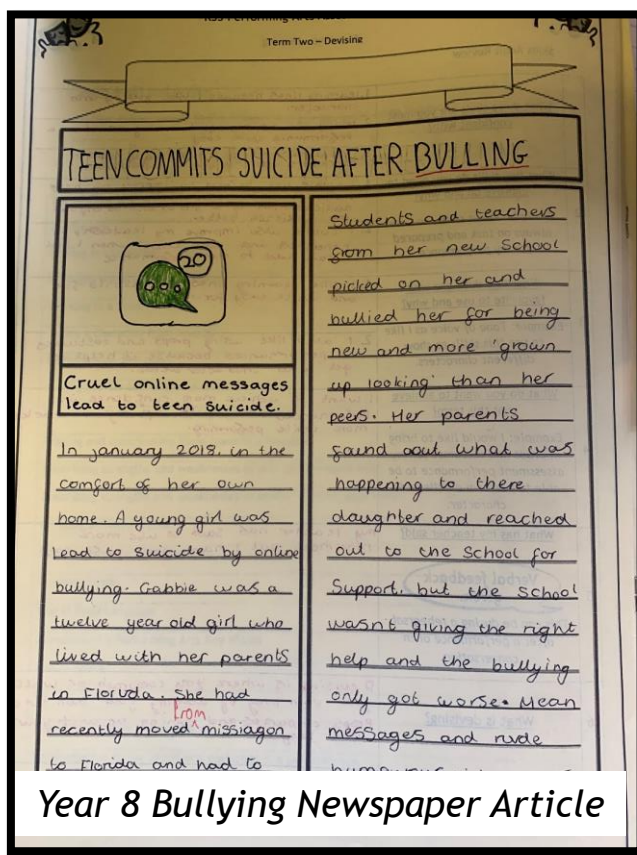 KS3 Performing Arts
Term Two – Devising
TEEN COMMITS SUICIDE AFTER BULLING
20
Cruel online messages
lead to teen suicide.
In january 2018, in the
comfort of her own
home. A young girl was
lead to suicide by online
bullying. Gabbie was a
twelve year old girl who
lived with her parents
in Floruda. She had
from
recently moved missiagon
to Florida and had to
Students and teachers
from her new School
picked on her and
bullied her for being
new and more 'grown
up looking' than her
peers. Her parents
found aout what was
happening to there
daughter and reached
out to the School for
Support, but the School
wasnt giving the right
help and the bullying
only got worse. Mean
messages and rude
Year 8 Bullying Newspaper Article